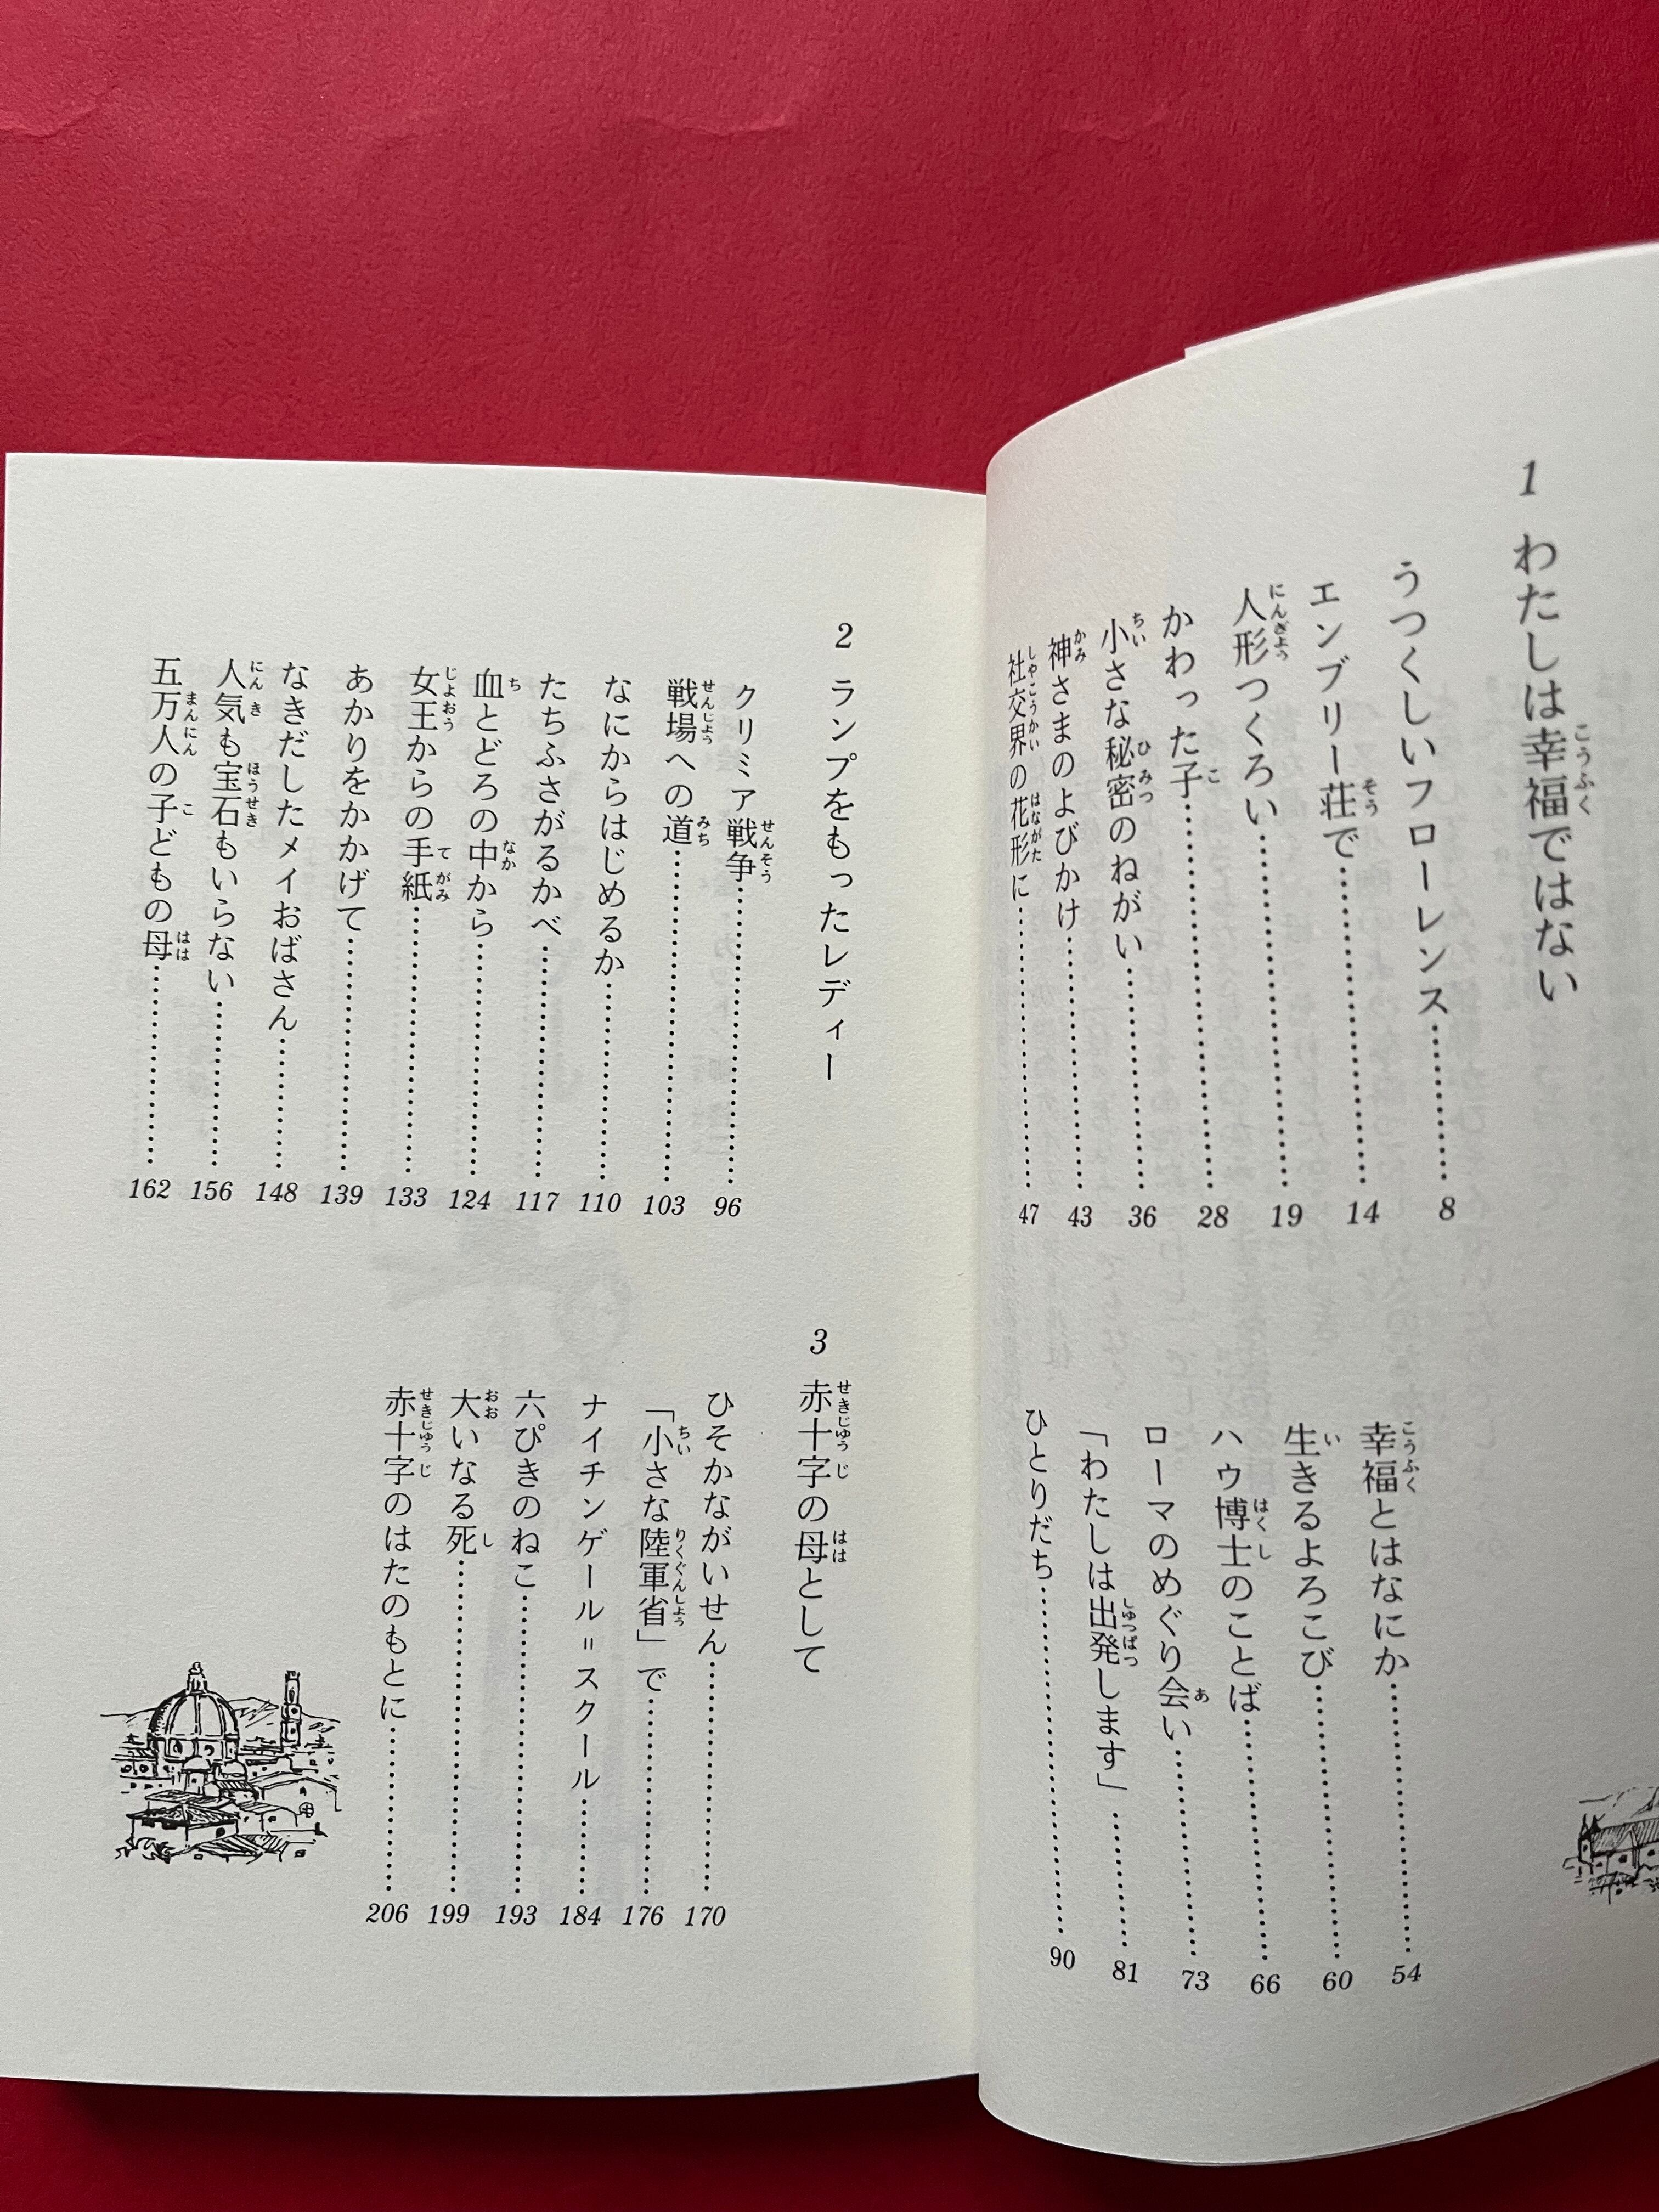 1 わたしは幸福ではない
うつくしいフローレンス 8
エンブリー荘で 14
人形つくろい 19
かわった子 28
小さな秘密のねがい 36
神さまのよびかけ 43
社交界の花形に 47
幸福とはなにか 54
生きるよろこび 60
ハウ博士のことば 66
ローマのめぐり会い 73
「わたしは出発します」 81
ひとりだち 90
2 ランプをもったレディー
クリミア戦争 96
戦場への道 103
なにからはじめるか 110
たちふさがるかべ 117
血とどろの中から 124
女王からの手紙 133
あかりをかかげて 139
なきだしたメイおばさん 148
人気も宝石もいらない 156
五万人の子どもの母 162
3 赤十字の母として
ひそかながいせん 170
「小さな陸軍省」で 176
ナイチンゲール=スクール 184
六ぴきのねこ 193
大いなる死 199
赤十字のはたのもとに 206